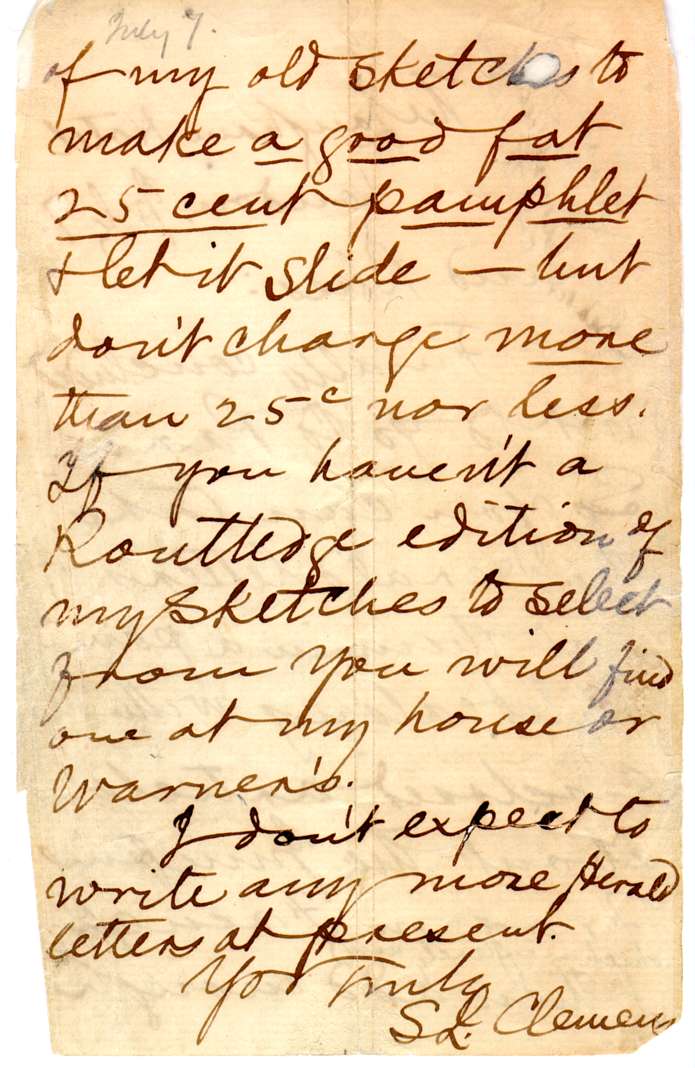 July 7.
of my old sketches to
make a good fat
25 cent pamphlet
& let it slide — but
don't charge more
than 25c nor less.
If you haven't a
Routledge edition of
my sketches to select
from you will find
one at my house or
Warner's.
I don't expect to
write any more Herald
letters at present.
Yrs Truly
S. L. Clemens